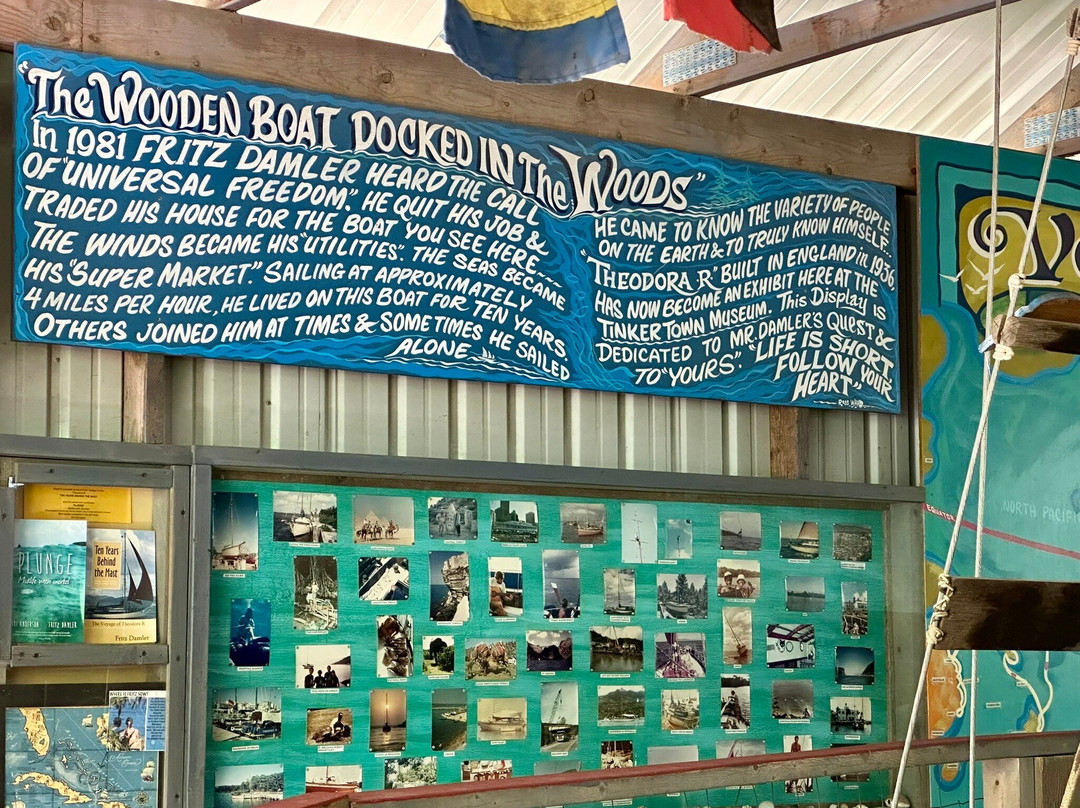 "The WOODEN BOAT DOCKED IN The WOODS"
In 1981 FRITZ DAMLER HEARD THE CALL
OF "UNIVERSAL FREEDOM." HE QUIT HIS JOB &
TRADED HIS HOUSE FOR THE BOAT YOU SEE HERE~~~
THE WINDS BECAME HIS "UTILITIES". THE SEAS BECAME
HIS "SUPER MARKET." SAILING AT APPROXIMATELY
4 MILES PER HOUR, HE LIVED ON THIS BOAT FOR TEN YEARS.
OTHERS JOINED HIM AT TIMES & SOMETIMES HE SAILED
ALONE
HE CAME TO KNOW THE VARIETY OF PEOPLE
ON THE EARTH & TO TRULY KNOW HIMSELF...
"THEODORA R." BUILT IN ENGLAND in 1936,
HAS NOW BECOME AN EXHIBIT HERE AT THE
TINKERTOWN MUSEUM. This Display is
DEDICATED TO MR. DAMLER'S QUEST &
TO "YOURS". "LIFE IS SHORT,
FOLLOW YOUR
HEART"
PLUNGE
Midlife with snorkel
ANDERSON FRITZ DAMLER
Ten Years
Behind
the Mast
The Voyage of Theodora R
Fritz Damler
WHERE IS FRITZ NOW?
EQUATOR
NORTH PACIFI